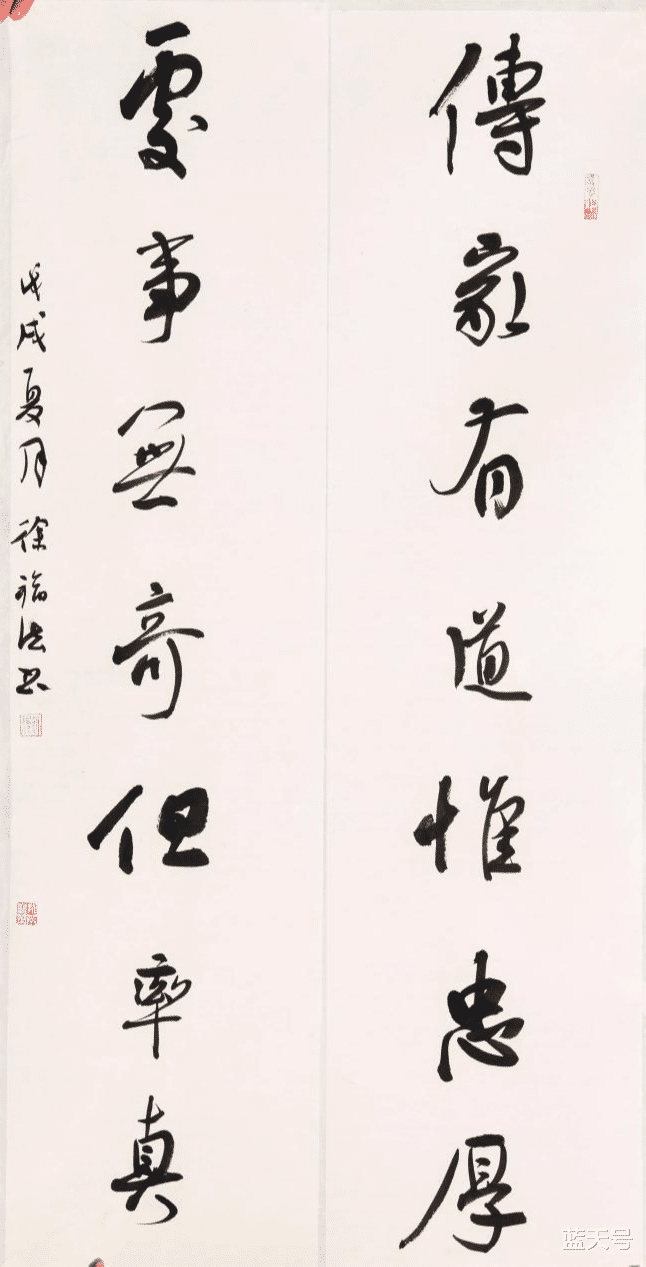 傳家有道惟忠厚
處事無奇但率真
戊戌夏月 徐福法书
蓝天号